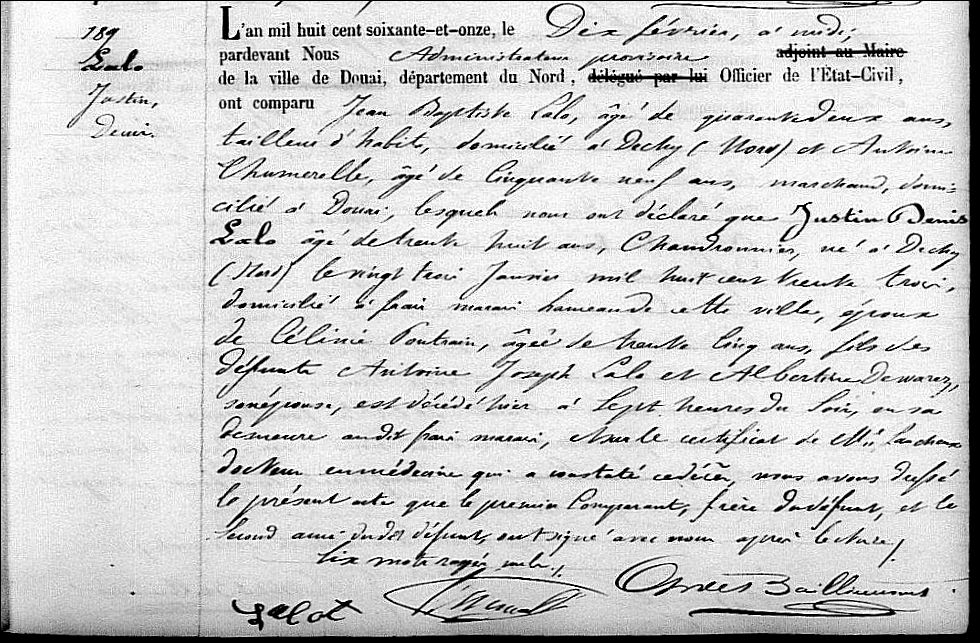 189
Lalo
Justin,
Denis.
L'an mil huit cent soixante-et-onze, le Dix février, à midi,
pardevant Nous Administrateur provisoire adjoint au Maire
de la ville de Douai, département du Nord, délégué par lui Officier de l'État-Civil,
ont comparu Jean Baptiste Lalo, âgé de quarante deux ans,
tailleur d'habits, domicilié à Dechy (Nord) et Antoine
Chumerelle, âgé de Cinquante neuf ans, marchand, domi-
cilié à Douai, lesquels nous ont déclaré que Justin Denis
Lalo âgé de trente huit ans, Chaudronnier, né à Dechy
(Nord) le vingt trois Janvier mil huit cent trente trois,
domicilié à frais marais hameau de cette ville, époux
de Célinie Poutrain, âgée de trente Cinq ans, fils des
défunts Antoine Joseph Lalo et Albertine Dewarez,
son épouse, est décédé hier à Sept heures du Soir, en sa
demeure audit frais marais, et sur le certificat de
docteur en médecine qui a constaté ce décès, nous avons dressé
le présent acte que le premier Comparant, frère du défunt, et le
Second ami dudit défunt, ont signé avec nous après lecture,
Six mots rayés nuls.
Lalot